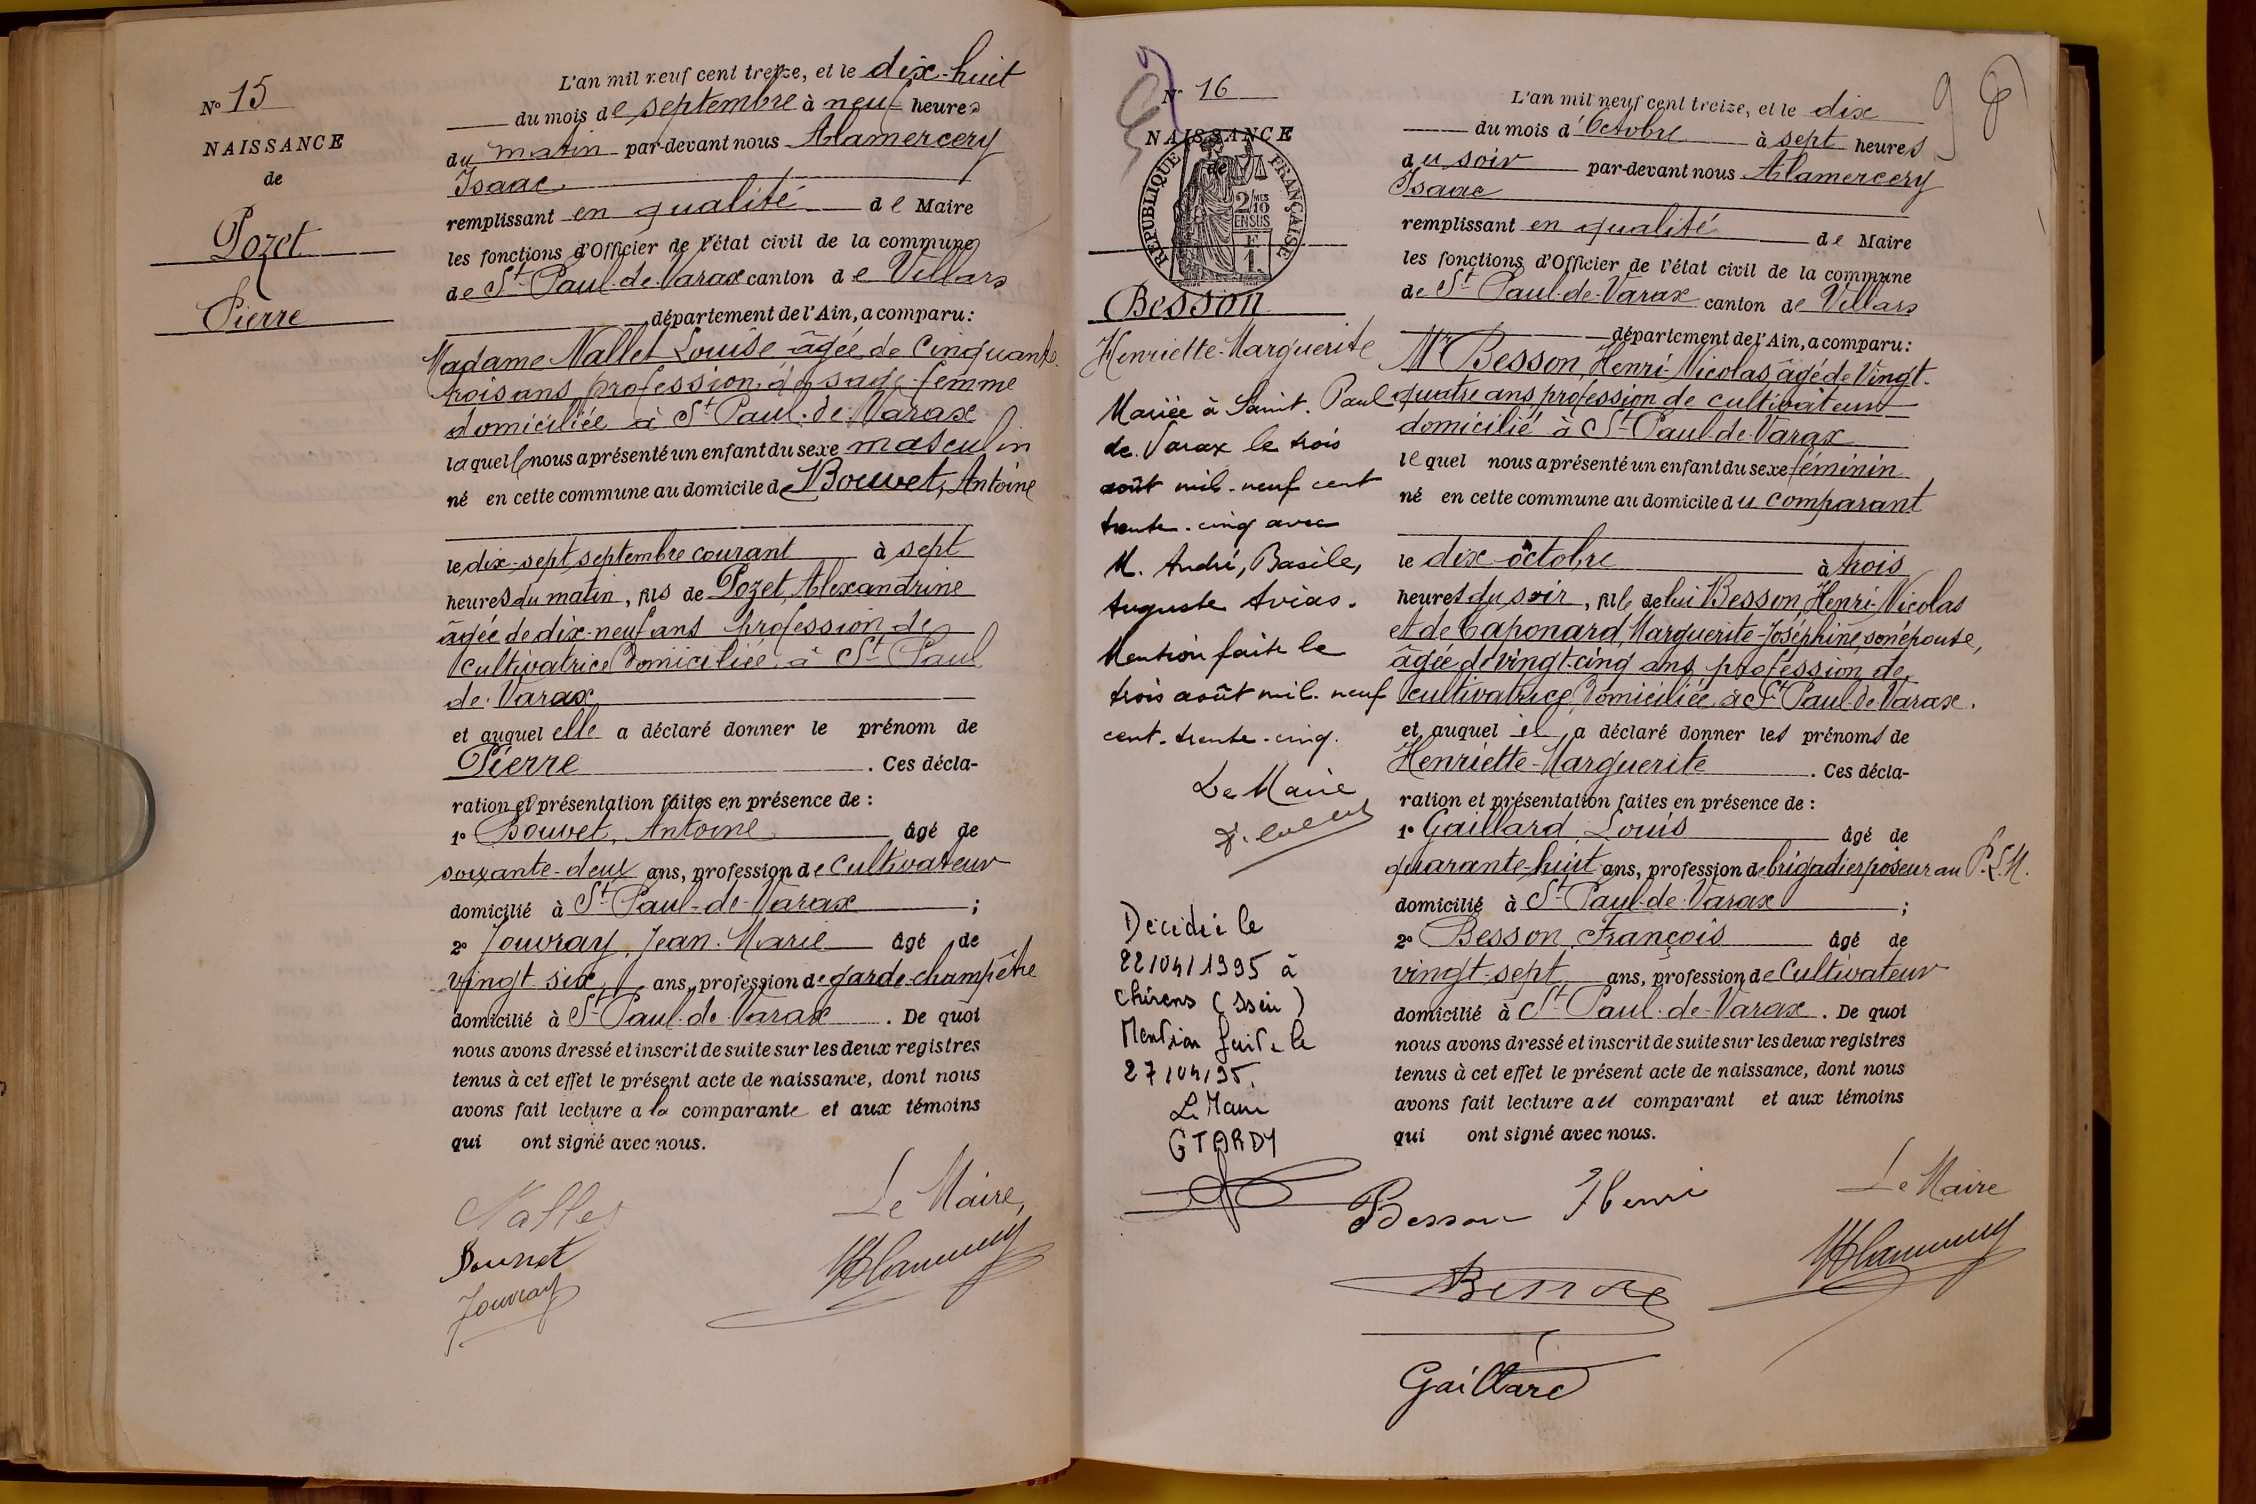 N° 15
NAISSANCE
de
Pozet
Pierre
L'an mil neuf cent treize, et le dix-huit
du mois de septembre à neuf heures
du matin par-devant nous Alamercery
Isaac
remplissant en qualité de Maire
les fonctions d'Officier de l'état civil de la commune
de St Paul-de-Varax canton de Villars
département de l'Ain, a comparu :
Madame Nallet Louise âgée de cinquante
trois ans profession de sage-femme
domiciliée à St Paul-de-Varax
laquelle nous a présenté un enfant du sexe masculin
né en cette commune au domicile de Bouvet, Antoine
le dix-sept septembre courant à sept
heures du matin, fils de Pozet, Alexandrine
âgée de dix-neuf ans profession de
cultivatrice domiciliée à St Paul
de Varax
et auquel elle a déclaré donner le prénom de
Pierre . Ces décla-
ration et présentation faites en présence de :
1° Bouvet, Antoine âgé de
soixante-deux ans, profession de cultivateur
domicilié à St Paul-de-Varax ;
2° Jouvray, Jean-Marie âgé de
vingt six ans, profession de garde-champêtre
domicilié à St Paul-de-Varax . De quoi
nous avons dressé et inscrit de suite sur les deux registres
tenus à cet effet le présent acte de naissance, dont nous
avons fait lecture a la comparante et aux témoins
qui ont signé avec nous.
Nallet
Le Maire,
Bouvet
Alamercery
Jouvray
98
N° 16
NAISSANCE
de
RÉPUBLIQUE FRANÇAISE
2/10 MES
EN SUS
Besson
Henriette-Marguerite
Mariée à Saint-Paul
de-Varax le trois
août mil-neuf cent
trente-cinq avec
M. André, Basile,
Auguste Avias.
Mention faite le
trois août mil-neuf
cent-trente-cinq.
Le Maire
Décédée le
22/04/1995 à
Chirens (Isère)
Mention faite le
27/04/95.
Le Maire
G TARDY
L'an mil neuf cent treize, et le dix
du mois d'Octobre à sept heures
du soir par-devant nous Alamercery
Isaac
remplissant en qualité de Maire
les fonctions d'Officier de l'état civil de la commune
de St Paul-de-Varax canton de Villars
département de l'Ain, a comparu :
Mr Besson, Henri-Nicolas, âgé de Vingt-
quatre ans, profession de cultivateur
domicilié à St Paul-de-Varax
lequel nous a présenté un enfant du sexe féminin
né en cette commune au domicile du comparant
le dix octobre à trois
heures du soir, fille de lui Besson, Henri-Nicolas
et de Caponard, Marguerite-Joséphine, son épouse,
âgée de vingt-cinq ans, profession de
cultivatrice, domiciliée à St Paul-de-Varax.
et auquel il a déclaré donner les prénoms de
Henriette-Marguerite . Ces décla-
ration et présentation faites en présence de :
1° Gaillard, Louis âgé de
quarante-huit ans, profession de brigadier poseur au P.L.M.
domicilié à St Paul-de-Varax ;
2° Besson, François âgé de
vingt-sept ans, profession de Cultivateur
domicilié à St Paul-de-Varax . De quoi
nous avons dressé et inscrit de suite sur les deux registres
tenus à cet effet le présent acte de naissance, dont nous
avons fait lecture au comparant et aux témoins
qui ont signé avec nous.
Besson Henri
Le Maire
Alamercery
Besson
Gaillard